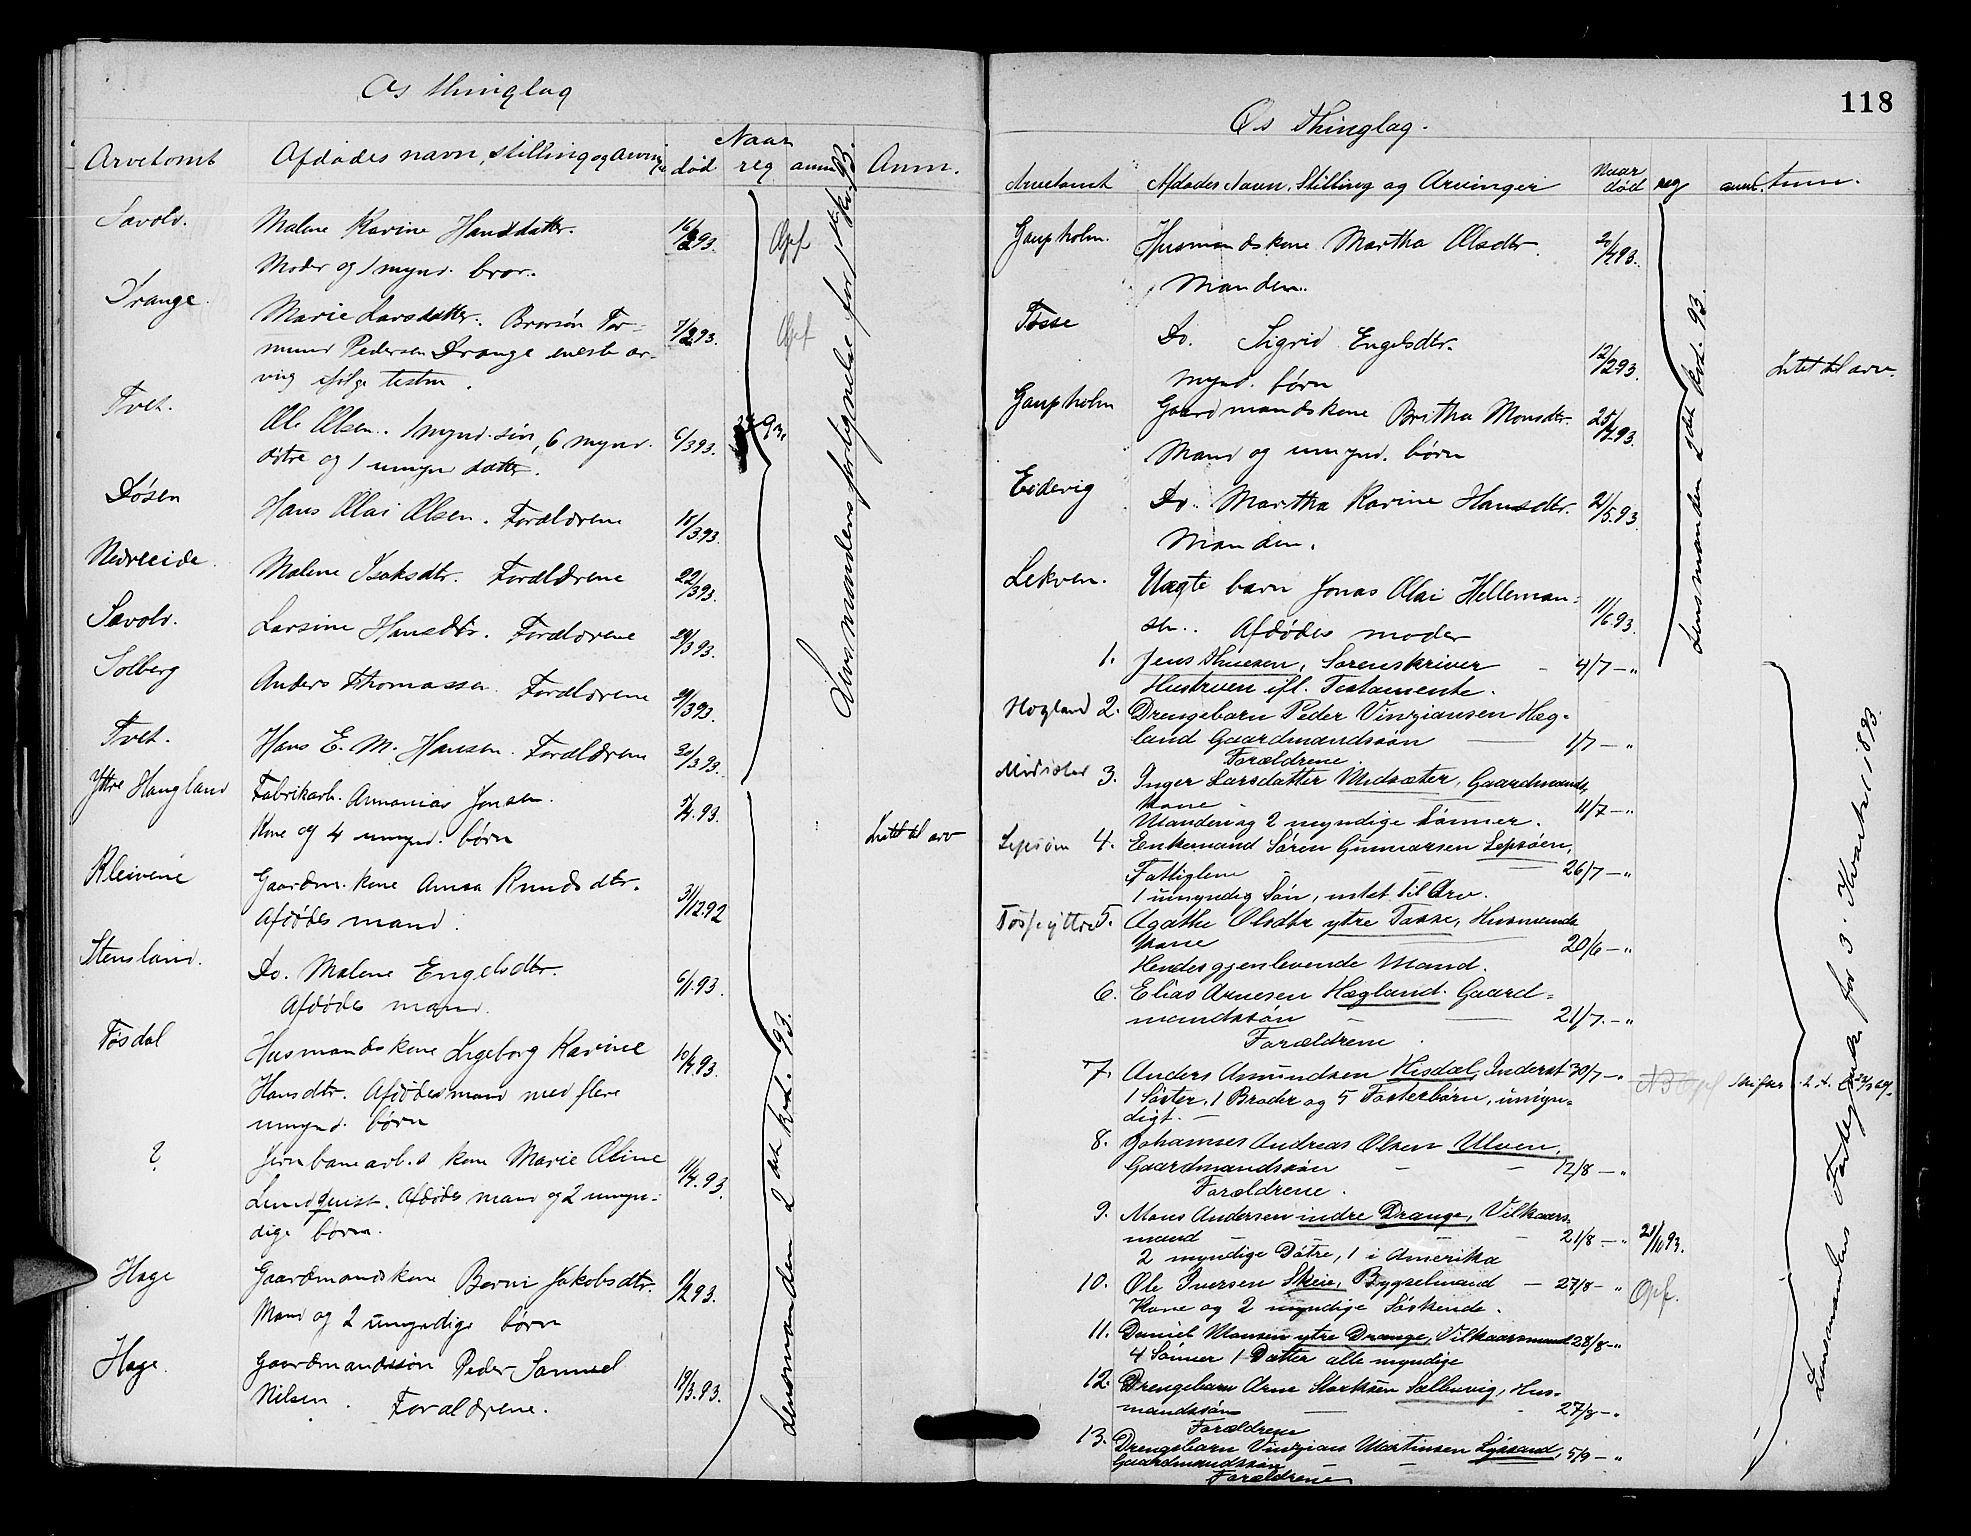 Os thinglag
Naar
Arvetomt Afdødes navn, stilling og arvinger død reg anm Anm.
Savold. Malene Karine Hansdatter. 16/2 93. Opf
Moder og 1 mynd. bror.
Drange. Marie Larsdatter. Brorsøn Tor-
mund Pedersen Drange eneste ar- 7/2 93. Opf
ving ifølge testm.
Tvet. Ole Olsen. 1 mynd. søn, 6 mynd. 6/3 93.
døtre og 1 umynd datter.
Døsen Hans Olai Olsen. Forældrene 10/3 93.
Nedreeide. Malene Isaksdtr. Forældrene 22/3 93.
Savold. Larsine Hansdtr. Forældrene 29/3 93.
Solberg Anders Thomassen. Forældrene 29/3 93.
Tvet. Hans E. M. Hansen. Forældrene 30/3 93.
Yttre Haugland Fabrikarb. Annanias Jonsen. 5/4 93.
Kone og 4 umynd. børn Intet til arv
Kleivene Gaardm. kone Anna Knudsdtr. 31/12 92
Afdødes mand.
Stensland. Do. Malene Engelsdtr. 6/1 93.
Afdødes mand.
Tøsdal Husmandskone Ingeborg Karine 10/4 93.
Hansdtr. Afdødes mand med flere
umynd. børn
? Jernbanearb.s kone Marie Oline 11/4 93.
Lundquist. Afdødes mand og 2 umyn-
dige børn.
Hage Gaardmandskone Berni Jakobsdtr. 9/2 93.
Mand og 2 umyndige børn
Hage. Gaardmandssøn Peder Samuel 19/3 93.
Nilsen. Forældrene.
Lensmandens fortegnelse for 1ste kv. 93.
Lensmanden 2det kvt. 93.
118
Os Thinglag.
Arvetomt Afdødes Navn, Stilling og Arvinger Naar død reg anm. Anm.
Gaupholm. Husmandskone Martha Olsdtr. 20/4 93.
Manden.
Tøsse Do. Sigrid Engelsdtr. 12/2 93. Intet til arv.
mynd. børn
Gaupholm Gaardmandskone Britha Monsdtr. 25/4 93.
Mand og umynd. børn
Eidevig Do. Martha Karine Hansdtr. 21/5 93.
Manden.
Lekven. Uægte barn Jonas Olai Helleman- 11/6 93.
sen. Afdødes moder
1. Jens Thuesen, Sorenskriver - 4/7 - "
Hustruen ifl. Testamente.
Hogland 2. Drengebarn Peder Vinzjansen Hæg-
land Gaardmandssøn - 1/7 - "
Forældrene.
Midsæter 3. Inger Larsdatter Midsæter, Gaardmands
kone 11/7 - "
Manden og 2 myndige Sønner.
Lepsøen 4. Enkemand Søren Gunnarsen Lepsøen,
Fattiglem - 26/7 - "
1 umyndig Søn, intet til Arv.
Tøsse yttre 5. Agathe Olsdtr ytre Tøsse, Husmands
kone 20/6 - "
Hendes gjenlevende Mand.
6. Elias Arnesen Hægland. Gaard-
mandssøn - 21/7 - "
Forældrene.
7. Anders Amundsen Hisdal, Inderst 30/7 - "
1 Søster, 1 Broder og 5 Fosterbørn, umyn-
digt.
8. Johannes Andreas Olsen Ulven,
Gaardmandssøn - 12/8 - "
Forældrene.
9. Mons Andersen indre Drange, Vilkaars-
mand - 21/8 - " 21/10 93.
2 myndige Døtre, 1 i Amerika
10. Ole Iversen Skeie, Bygselmand - 27/8 - " Opf.
Kone og 2 myndige Søskende.
11. Daniel Monsen ytre Drange, Vilkaarsmand 28/8 - "
4 Sønner 1 Datter alle myndige
12. Drengebarn Arne Storksen Sælbuvig, Hus-
mandssøn - 27/8 - "
Forældrene
13. Drengebarn Vinzjans Martinsen Lyssand, 5/9 - "
Gaardmandssøn
Forældrene
Lensmanden 2det kvt. 93.
Lensmandens Fortegnelse for 3. Kvartal 1893.